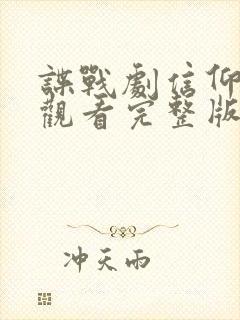 諜戰劇信仰
觀看完整版
冲天雨